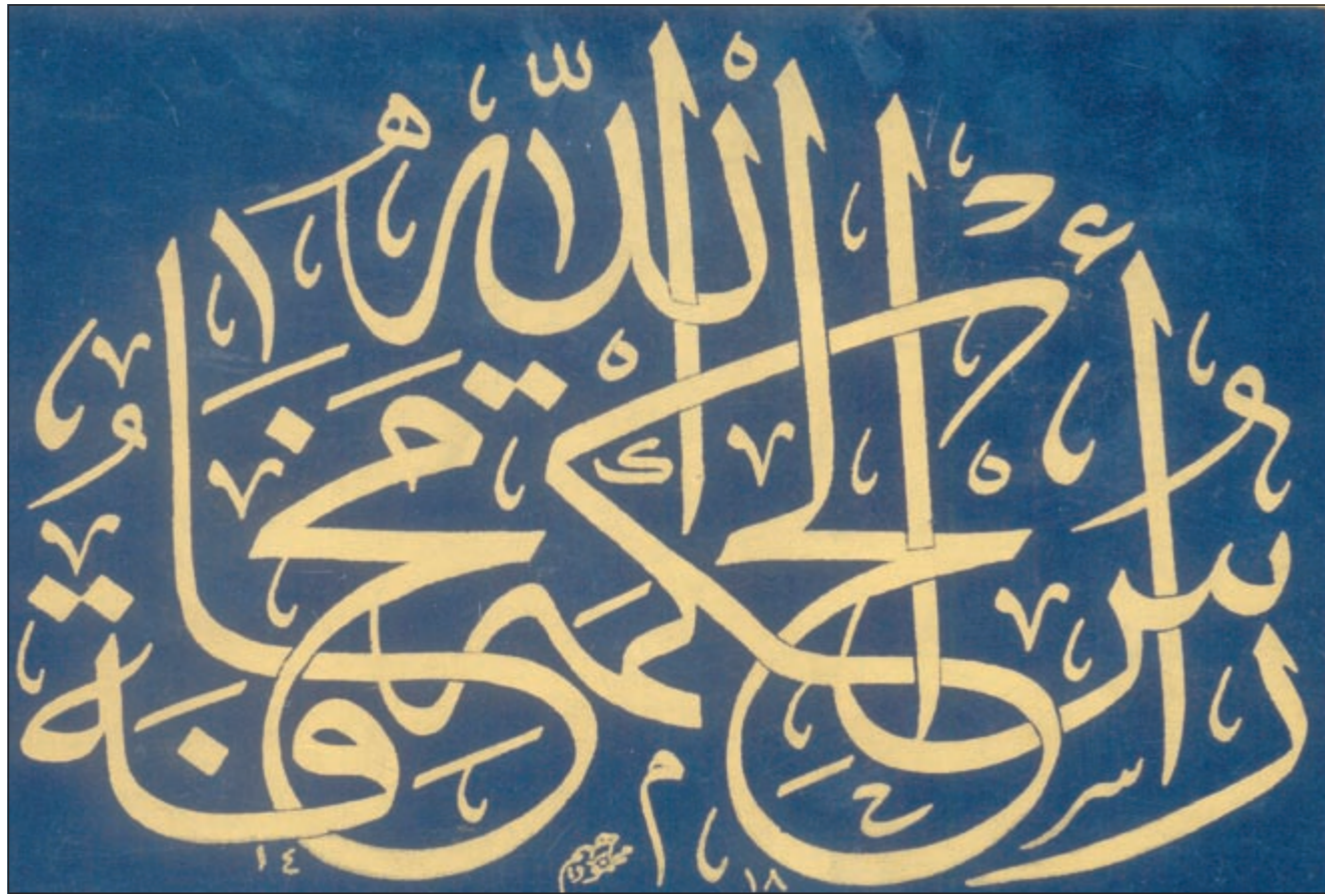 رَأْسُ الْحِكْمَةِ مَخَافَةُ اللّٰهِ
١٤ ١٨